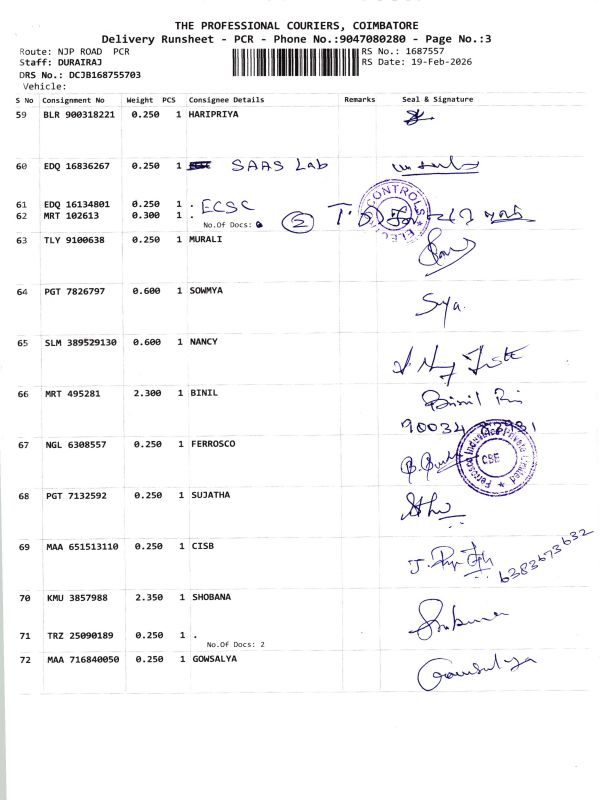 THE PROFESSIONAL COURIERS, COIMBATORE
Delivery Runsheet - PCR - Phone No.:9047080280 - Page No.:3
Route: NJP ROAD PCR
RS No.: 1687557
Staff: DURAIRAJ
RS Date: 19-Feb-2026
DRS No.: DCJB168755703
Vehicle:
S No Consignment No Weight PCS Consignee Details Remarks Seal & Signature
59 BLR 900318221 0.250 1 HARIPRIYA
60 EDQ 16836267 0.250 1 SAAS Lab
61 EDQ 16134801 0.250 1 . ECSC
62 MRT 102613 0.300 1 .
No.Of Docs: 2
CONTROLS * ELECT
63 TLY 9100638 0.250 1 MURALI
64 PGT 7826797 0.600 1 SOWMYA
Sya.
65 SLM 389529130 0.600 1 NANCY
66 MRT 495281 2.300 1 BINIL
Binil
90034
67 NGL 6308557 0.250 1 FERROSCO
Ferrosco Industrial Private Limited * CBE
68 PGT 7132592 0.250 1 SUJATHA
69 MAA 651513110 0.250 1 CISB
6383673632
70 KMU 3857988 2.350 1 SHOBANA
71 TRZ 25090189 0.250 1 .
No.Of Docs: 2
72 MAA 716840050 0.250 1 GOWSALYA
Gowsalya